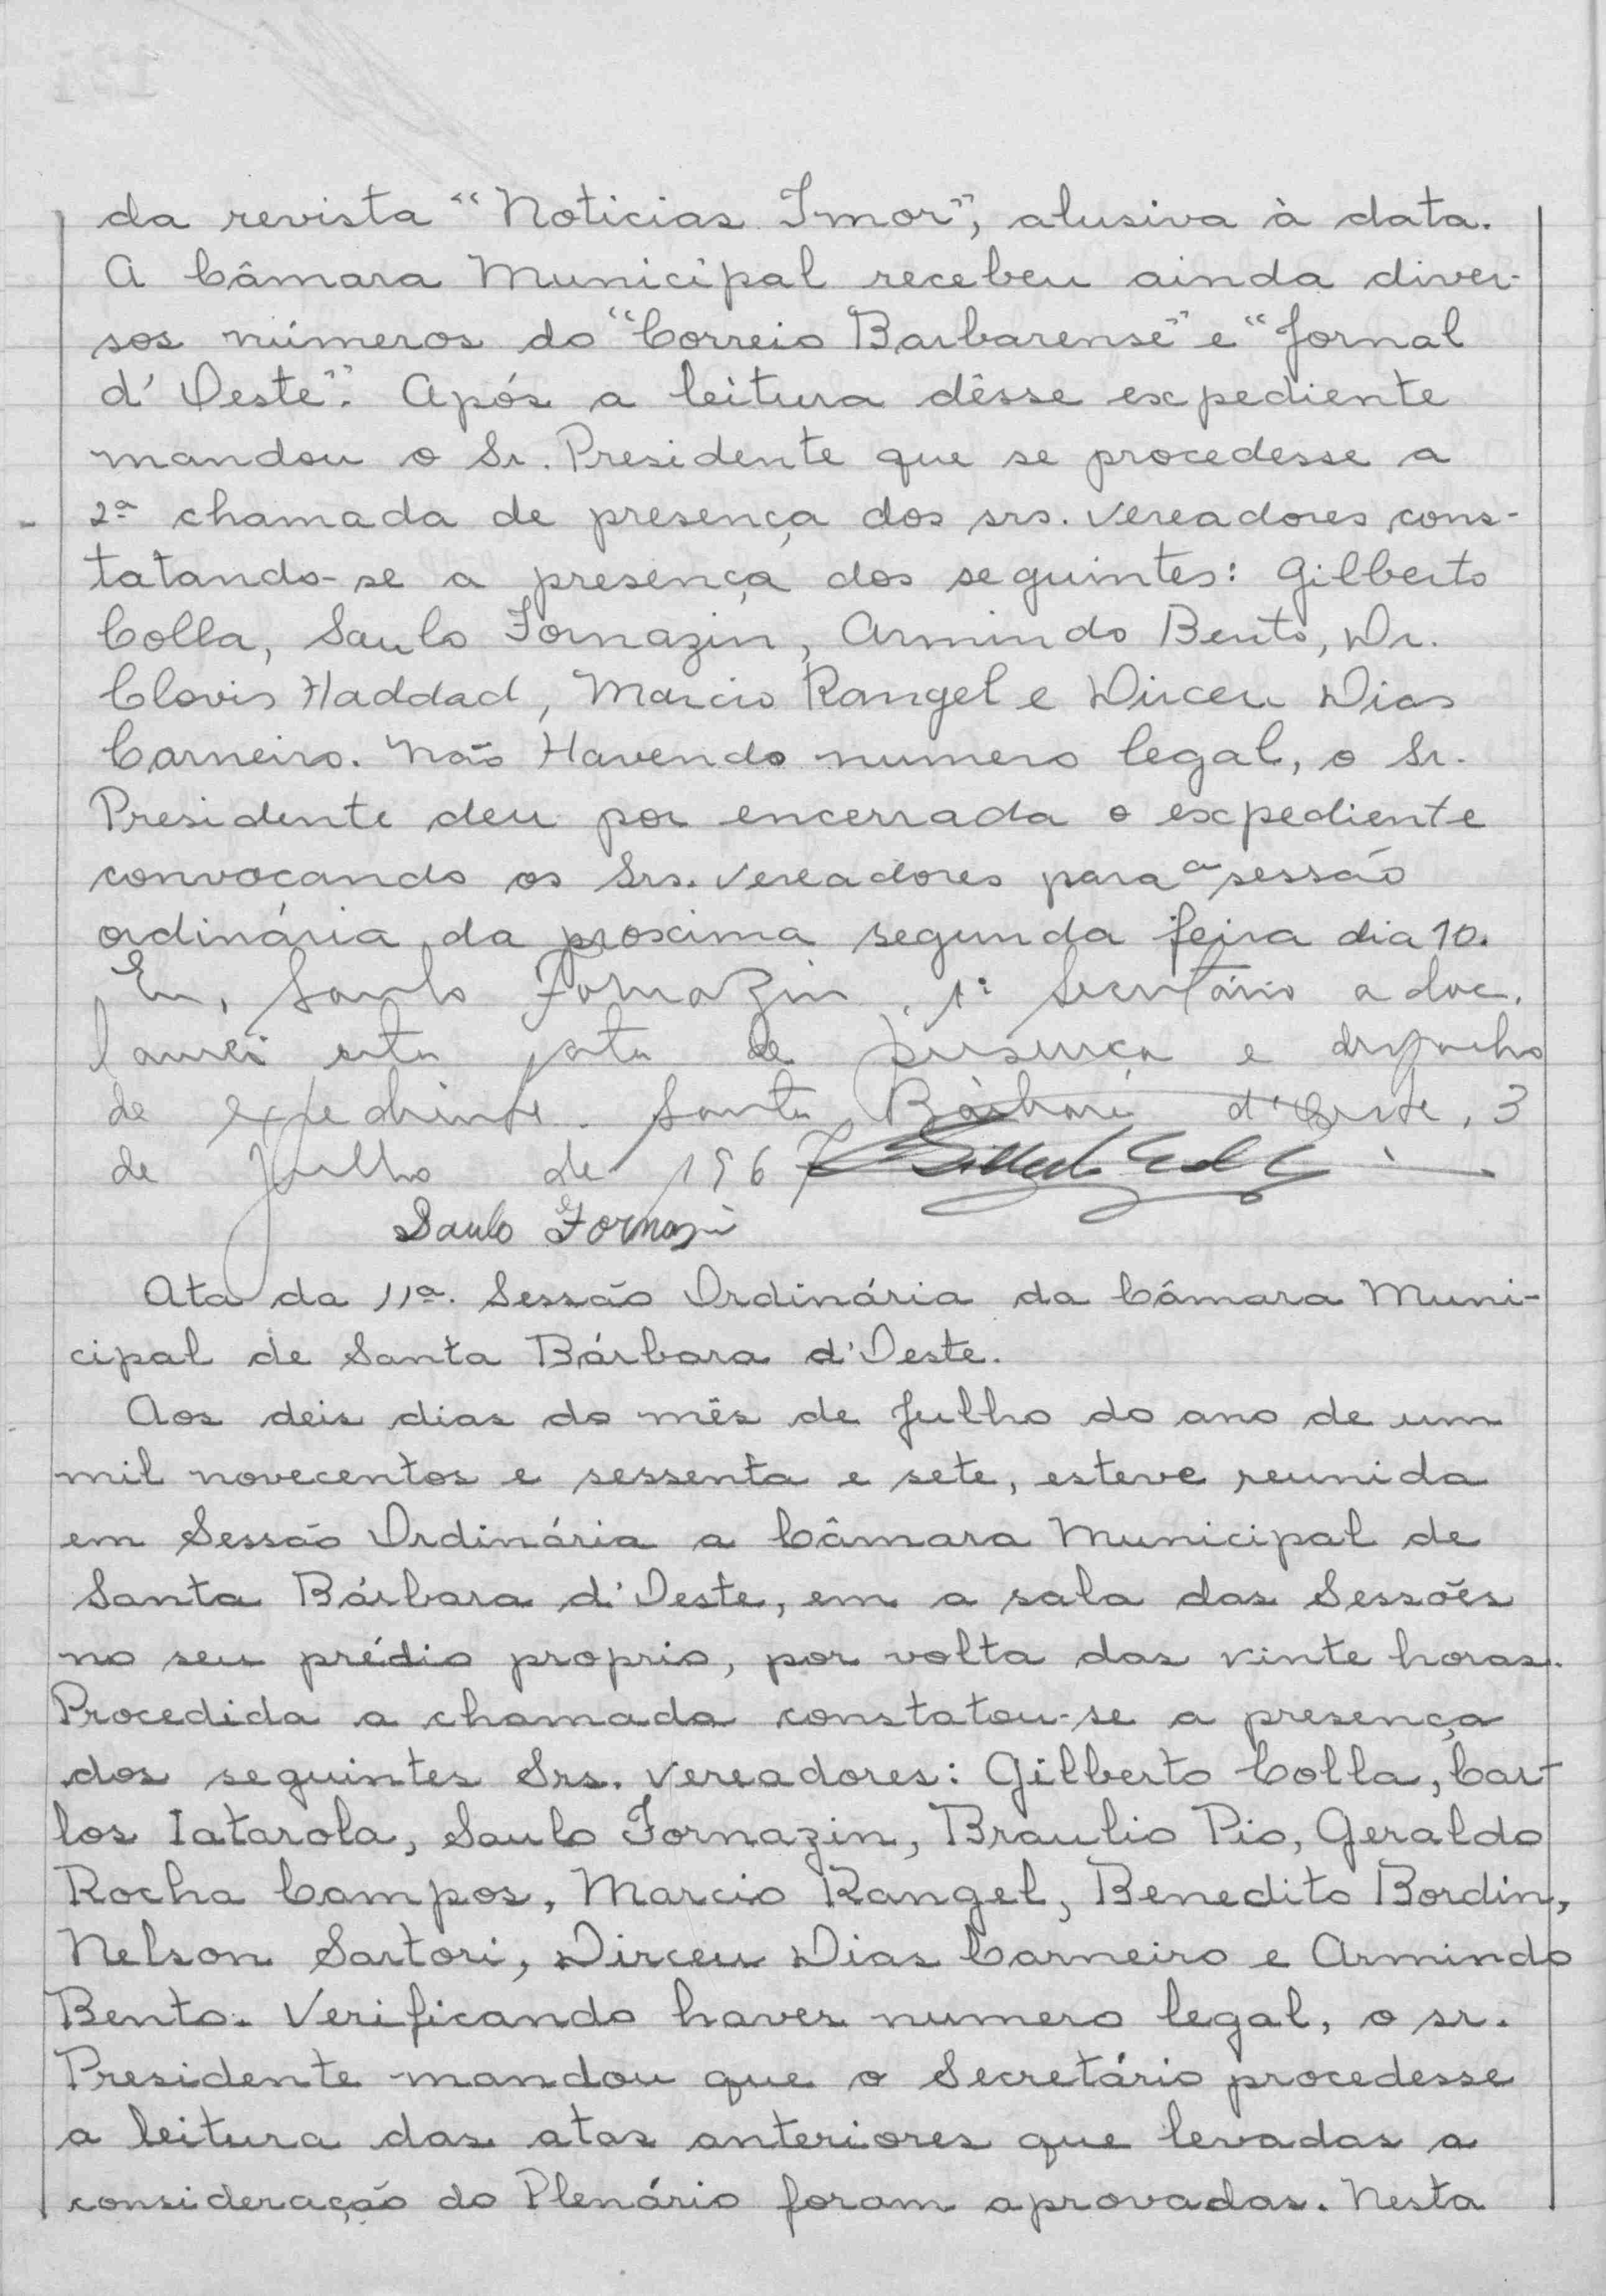 da revista "Noticias Imor", alusiva à data.
A Câmara Municipal recebeu ainda diver-
sos números do "Correio Barbarense" e "Jornal
d'Oeste". Após a leitura dêsse expediente
mandou o Sr. Presidente que se procedesse a
2ª chamada de presença dos srs. vereadores cons-
tatando-se a presença dos seguintes: Gilberto
Colla, Saulo Fornazin, Armindo Bento, Dr.
Clovis Haddad, Marcio Rangel e Dirceu Dias
Carneiro. Não Havendo numero legal, o Sr.
Presidente deu por encerrada o expediente
convocando os Srs. vereadores para a sessão
ordinária da proxima segunda feira dia 10.
Eu, Saulo Fornazin, 1º Secretário a doc.
lavrei esta de presença e despacho
de expediente. Santa Bárbara d'Oeste, 3
de Julho de 1967
Saulo Fornazin
Ata da 11ª. Sessão Ordinária da Câmara Muni-
cipal de Santa Bárbara d'Oeste.
Aos deis dias do mês de Julho do ano de um
mil novecentos e sessenta e sete, esteve reunida
em Sessão Ordinária a Câmara Municipal de
Santa Bárbara d'Oeste, em a sala das Sessões
no seu prédio proprio, por volta das vinte horas.
Procedida a chamada constatou-se a presença
dos seguintes Srs. vereadores: Gilberto Colla, Car-
los Iatarola, Saulo Fornazin, Braulio Pio, Geraldo
Rocha Campos, Marcio Rangel, Benedito Bordin,
Nelson Sartori, Dirceu Dias Carneiro e Armindo
Bento. Verificando haver numero legal, o sr.
Presidente mandou que o Secretário procedesse
a leitura das atas anteriores que levadas a
consideração do Plenário foram aprovadas. Nesta